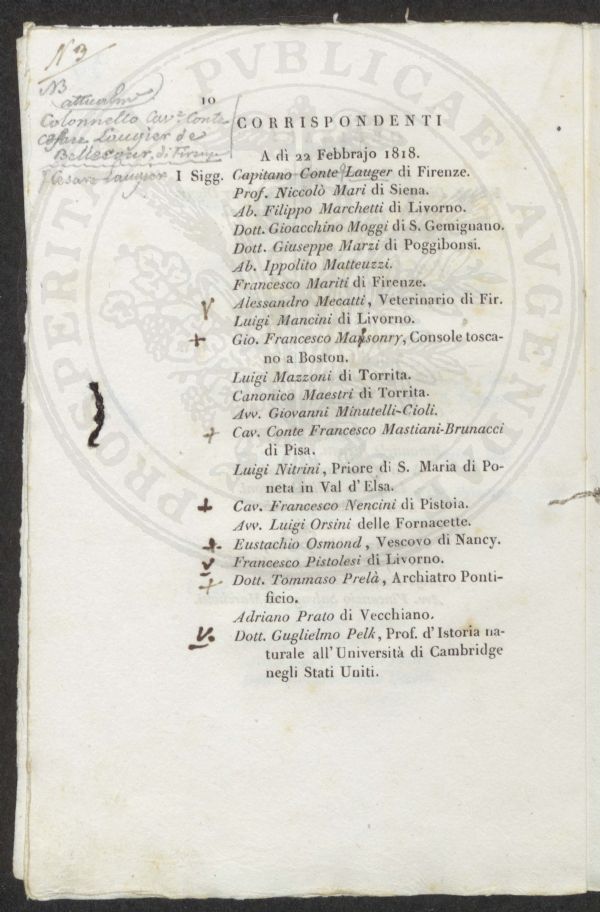 N 3
NB
attualme
Colonnello Cav.e Conte
Cesare Laugier de
Bellecour, di Firenze
Cesare Laugier
10
CORRISPONDENTI
A dì 22 Febbrajo 1818.
I Sigg. Capitano Conte Lauger di Firenze.
Prof. Niccolò Mari di Siena.
Ab. Filippo Marchetti di Livorno.
Dott. Gioacchino Moggi di S. Gemignano.
Dott. Giuseppe Marzi di Poggibonsi.
Ab. Ippolito Matteuzzi.
Francesco Mariti di Firenze.
V Alessandro Mecatti, Veterinario di Fir.
Luigi Mancini di Livorno.
+ Gio. Francesco Massonry, Console tosca-
no a Boston.
Luigi Mazzoni di Torrita.
Canonico Maestri di Torrita.
Avv. Giovanni Minutelli-Cioli.
+ Cav. Conte Francesco Mastiani-Brunacci
di Pisa.
Luigi Nitrini, Priore di S. Maria di Po-
neta in Val d'Elsa.
+ Cav. Francesco Nencini di Pistoia.
Avv. Luigi Orsini delle Fornacette.
+ Eustachio Osmond, Vescovo di Nancy.
V Francesco Pistolesi di Livorno.
+ Dott. Tommaso Prelà, Archiatro Ponti-
ficio.
Adriano Prato di Vecchiano.
V. Dott. Guglielmo Pelk, Prof. d'Istoria na-
turale all'Università di Cambridge
negli Stati Uniti.
PROSPERITATI PVBLICAE AVGENDAE